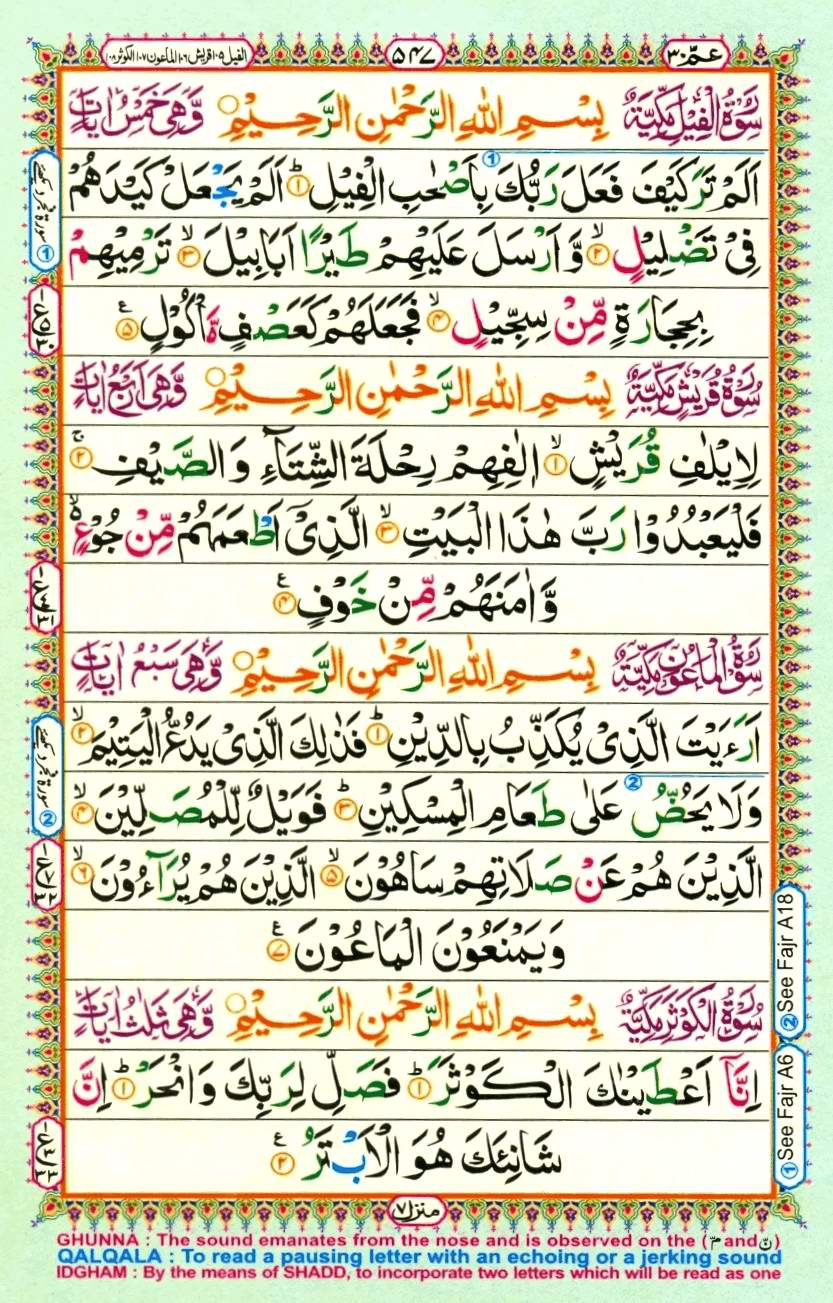 عمّ ۳۰
۵۴۷
الفیل ۱۰۵ قریش ۱۰۶ الماعون ۱۰۷ الکوثر ۱۰۸
سُوْرَةُ الْفِيْلِ مَكِّيَّةٌ بِسْمِ اللّٰهِ الرَّحْمٰنِ الرَّحِيْمِ وَّهِيَ خَمْسُ اٰيَاتٍ
اَلَمْ تَرَ كَيْفَ فَعَلَ رَبُّكَ بِاَصْحٰبِ الْفِيْلِ ؕ۱ اَلَمْ يَجْعَلْ كَيْدَهُمْ
فِيْ تَضْلِيْلٍ ۙ۲ وَّاَرْسَلَ عَلَيْهِمْ طَيْرًا اَبَابِيْلَ ۙ۳ تَرْمِيْهِمْ
بِحِجَارَةٍ مِّنْ سِجِّيْلٍ ۙ۴ فَجَعَلَهُمْ كَعَصْفٍ مَّاْكُوْلٍ ۵ع
سُوْرَةُ قُرَيْشٍ مَكِّيَّةٌ بِسْمِ اللّٰهِ الرَّحْمٰنِ الرَّحِيْمِ وَّهِيَ اَرْبَعُ اٰيَاتٍ
لِاِيْلٰفِ قُرَيْشٍ ۙ۱ اٖلٰفِهِمْ رِحْلَةَ الشِّتَآءِ وَالصَّيْفِ ۚ۲
فَلْيَعْبُدُوْا رَبَّ هٰذَا الْبَيْتِ ۙ۳ الَّذِيْٓ اَطْعَمَهُمْ مِّنْ جُوْعٍ ۙ
وَّاٰمَنَهُمْ مِّنْ خَوْفٍ ۴ع
سُوْرَةُ الْمَاعُوْنِ مَكِّيَّةٌ بِسْمِ اللّٰهِ الرَّحْمٰنِ الرَّحِيْمِ وَّهِيَ سَبْعُ اٰيَاتٍ
اَرَءَيْتَ الَّذِيْ يُكَذِّبُ بِالدِّيْنِ ؕ۱ فَذٰلِكَ الَّذِيْ يَدُعُّ الْيَتِيْمَ ۙ۲
وَلَا يَحُضُّ عَلٰى طَعَامِ الْمِسْكِيْنِ ؕ۳ فَوَيْلٌ لِّلْمُصَلِّيْنَ ۙ۴
الَّذِيْنَ هُمْ عَنْ صَلَاتِهِمْ سَاهُوْنَ ۙ۵ الَّذِيْنَ هُمْ يُرَآءُوْنَ ۙ۶
وَيَمْنَعُوْنَ الْمَاعُوْنَ ۷ع
سُوْرَةُ الْكَوْثَرِ مَكِّيَّةٌ بِسْمِ اللّٰهِ الرَّحْمٰنِ الرَّحِيْمِ وَّهِيَ ثَلٰثُ اٰيَاتٍ
اِنَّآ اَعْطَيْنٰكَ الْكَوْثَرَ ؕ۱ فَصَلِّ لِرَبِّكَ وَانْحَرْ ؕ اِنَّ
شَانِئَكَ هُوَ الْاَبْتَرُ ع
منزل ۷
① See Fajr A6
② See Fajr A18
GHUNNA : The sound emanates from the nose and is observed on the (مّ and نّ)
QALQALA : To read a pausing letter with an echoing or a jerking sound
IDGHAM : By the means of SHADD, to incorporate two letters which will be read as one